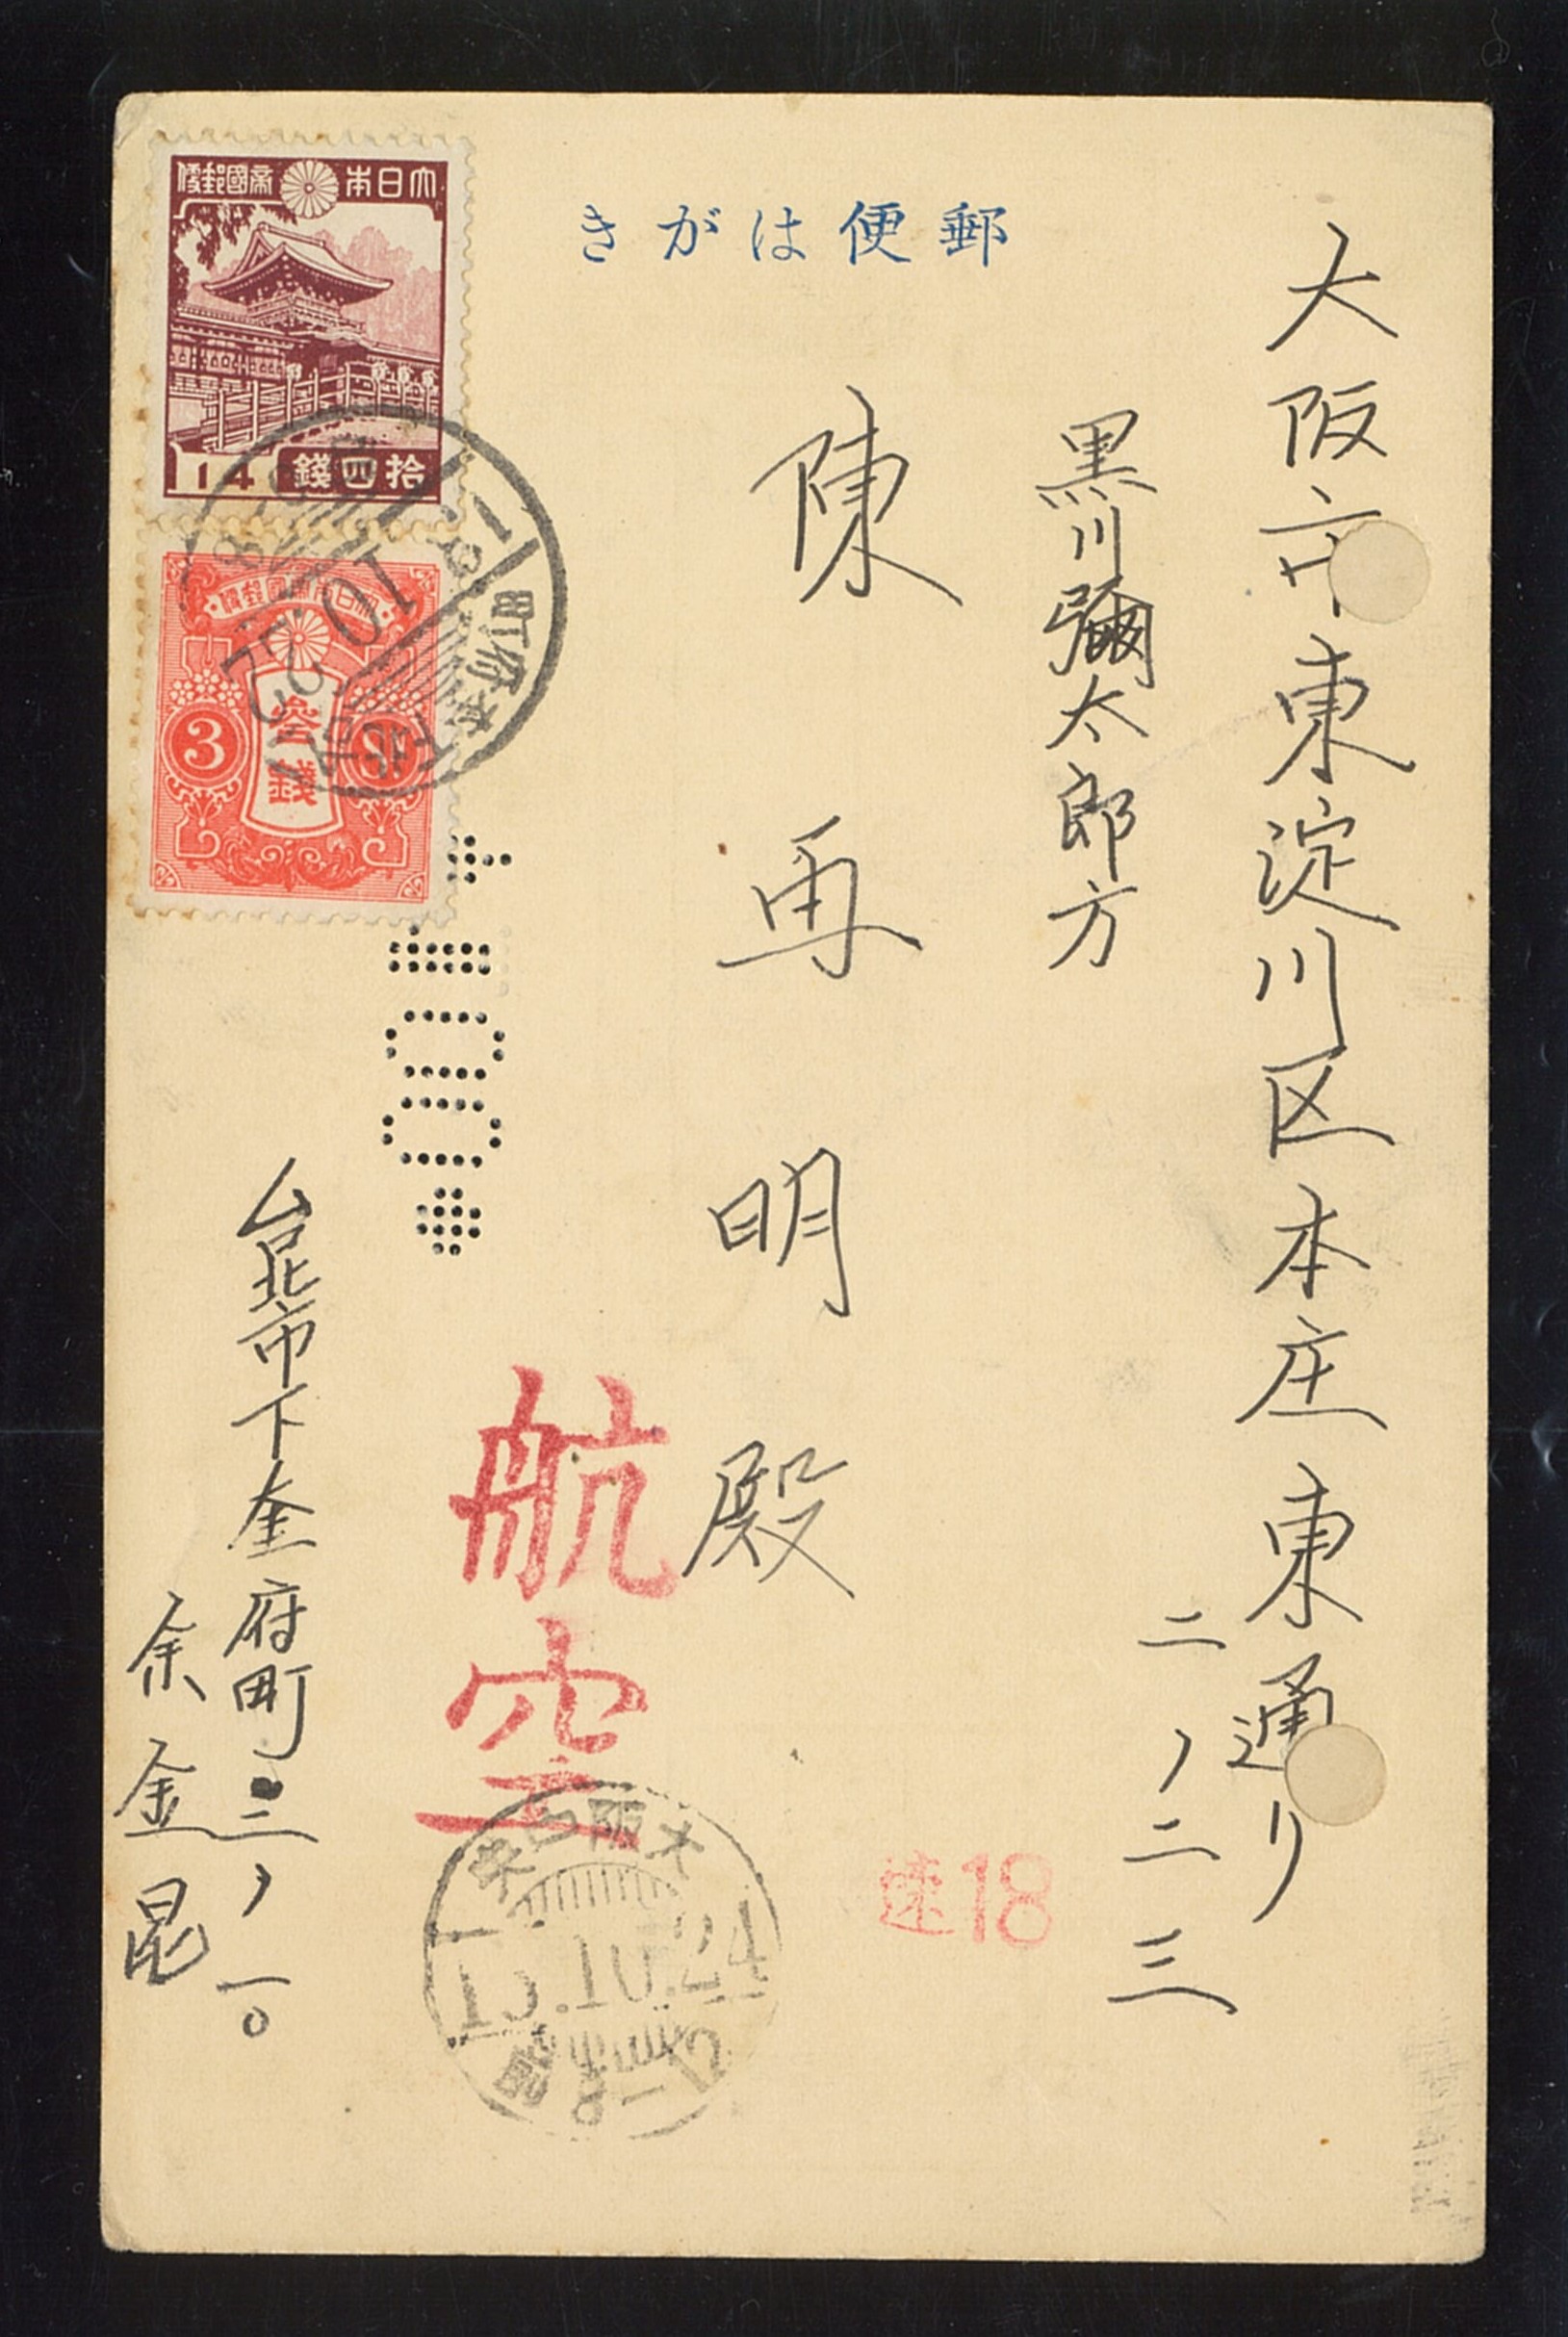 郵便はがき
大阪市東淀川区本庄東通り
二ノ二三
黒川彌太郎方
陳再明殿
大日本帝國郵便
拾四錢
14
大日本帝國郵便
參錢
3
3
台北
本府町
10.22
航空
速18
大阪中央
15.10.24
台北市下奎府町三ノ一〇
余金昆